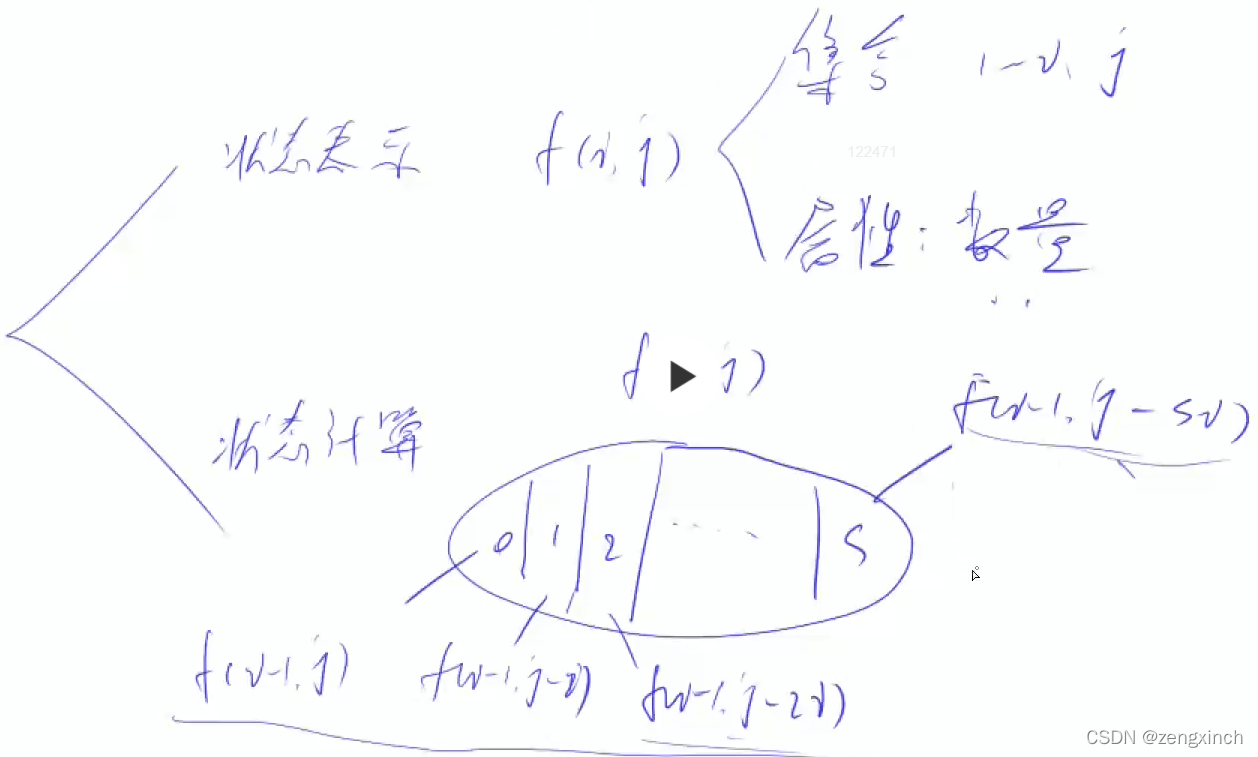 集合 1~i, j
状态表示 f(i, j)
122471
属性: 数量
f j)
f(i-1, j-si)
状态计算
0 1 2 ..... s
f(i-1, j) f(i-1, j-i) f(i-1, j-2i)
CSDN @zengxinch